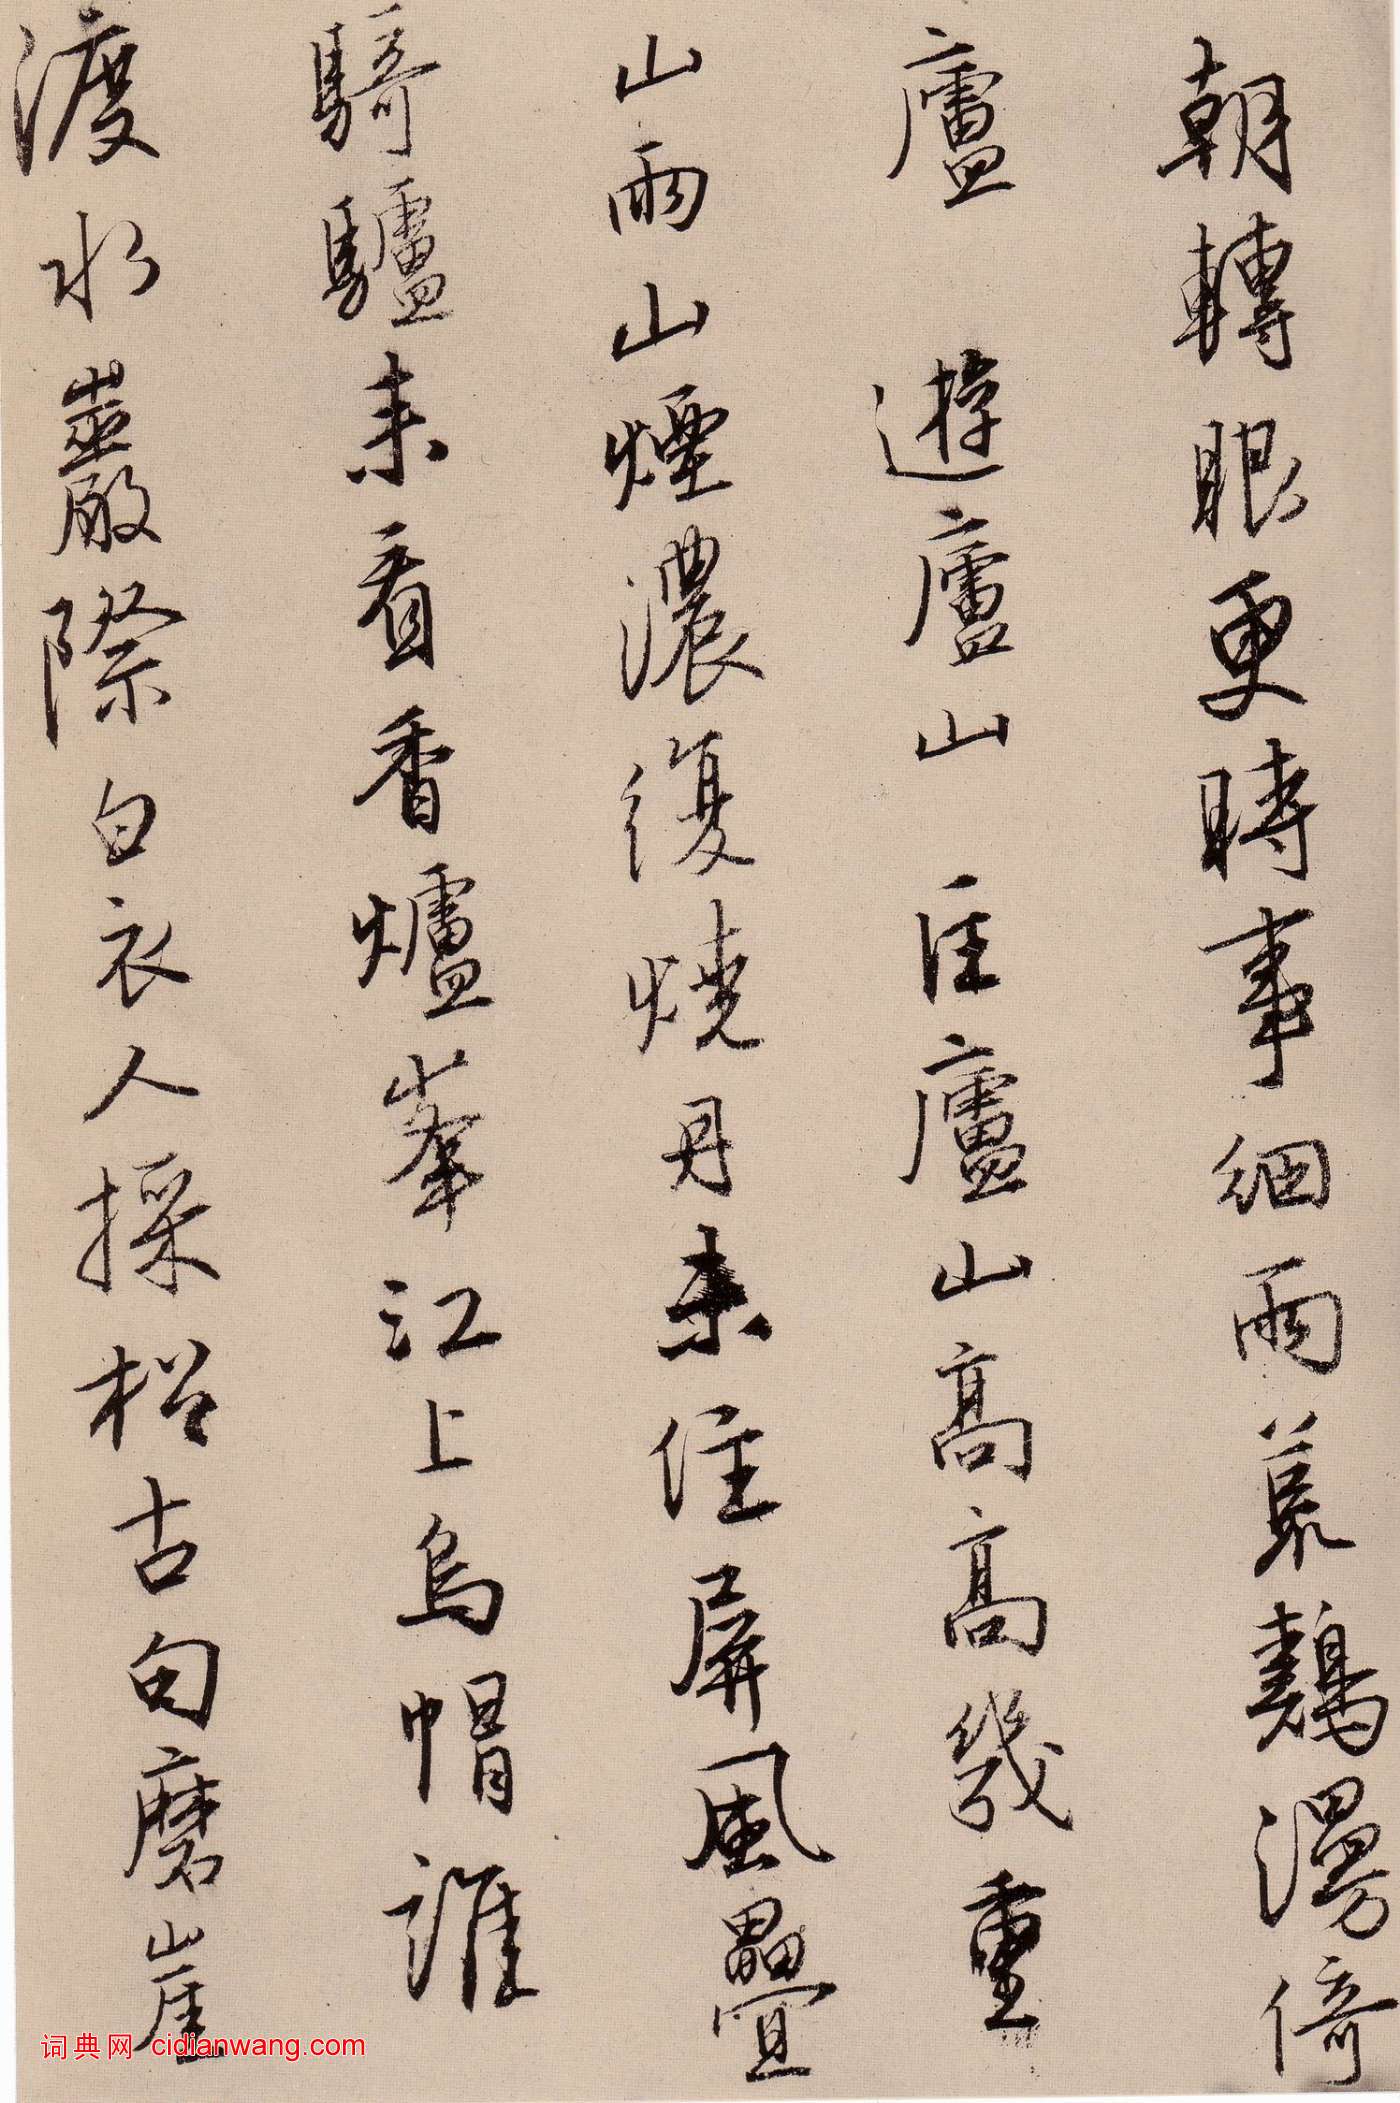 朝轉眼更時事細雨菉鷬漫倚
廬 遊廬山 住廬山高高幾重
山雨山煙濃復燒丹來住屏風疊
騎驢來看香爐峯江上烏帽誰
渡水巖際白衣人採松古句磨崖
词典网 cidianwang.com